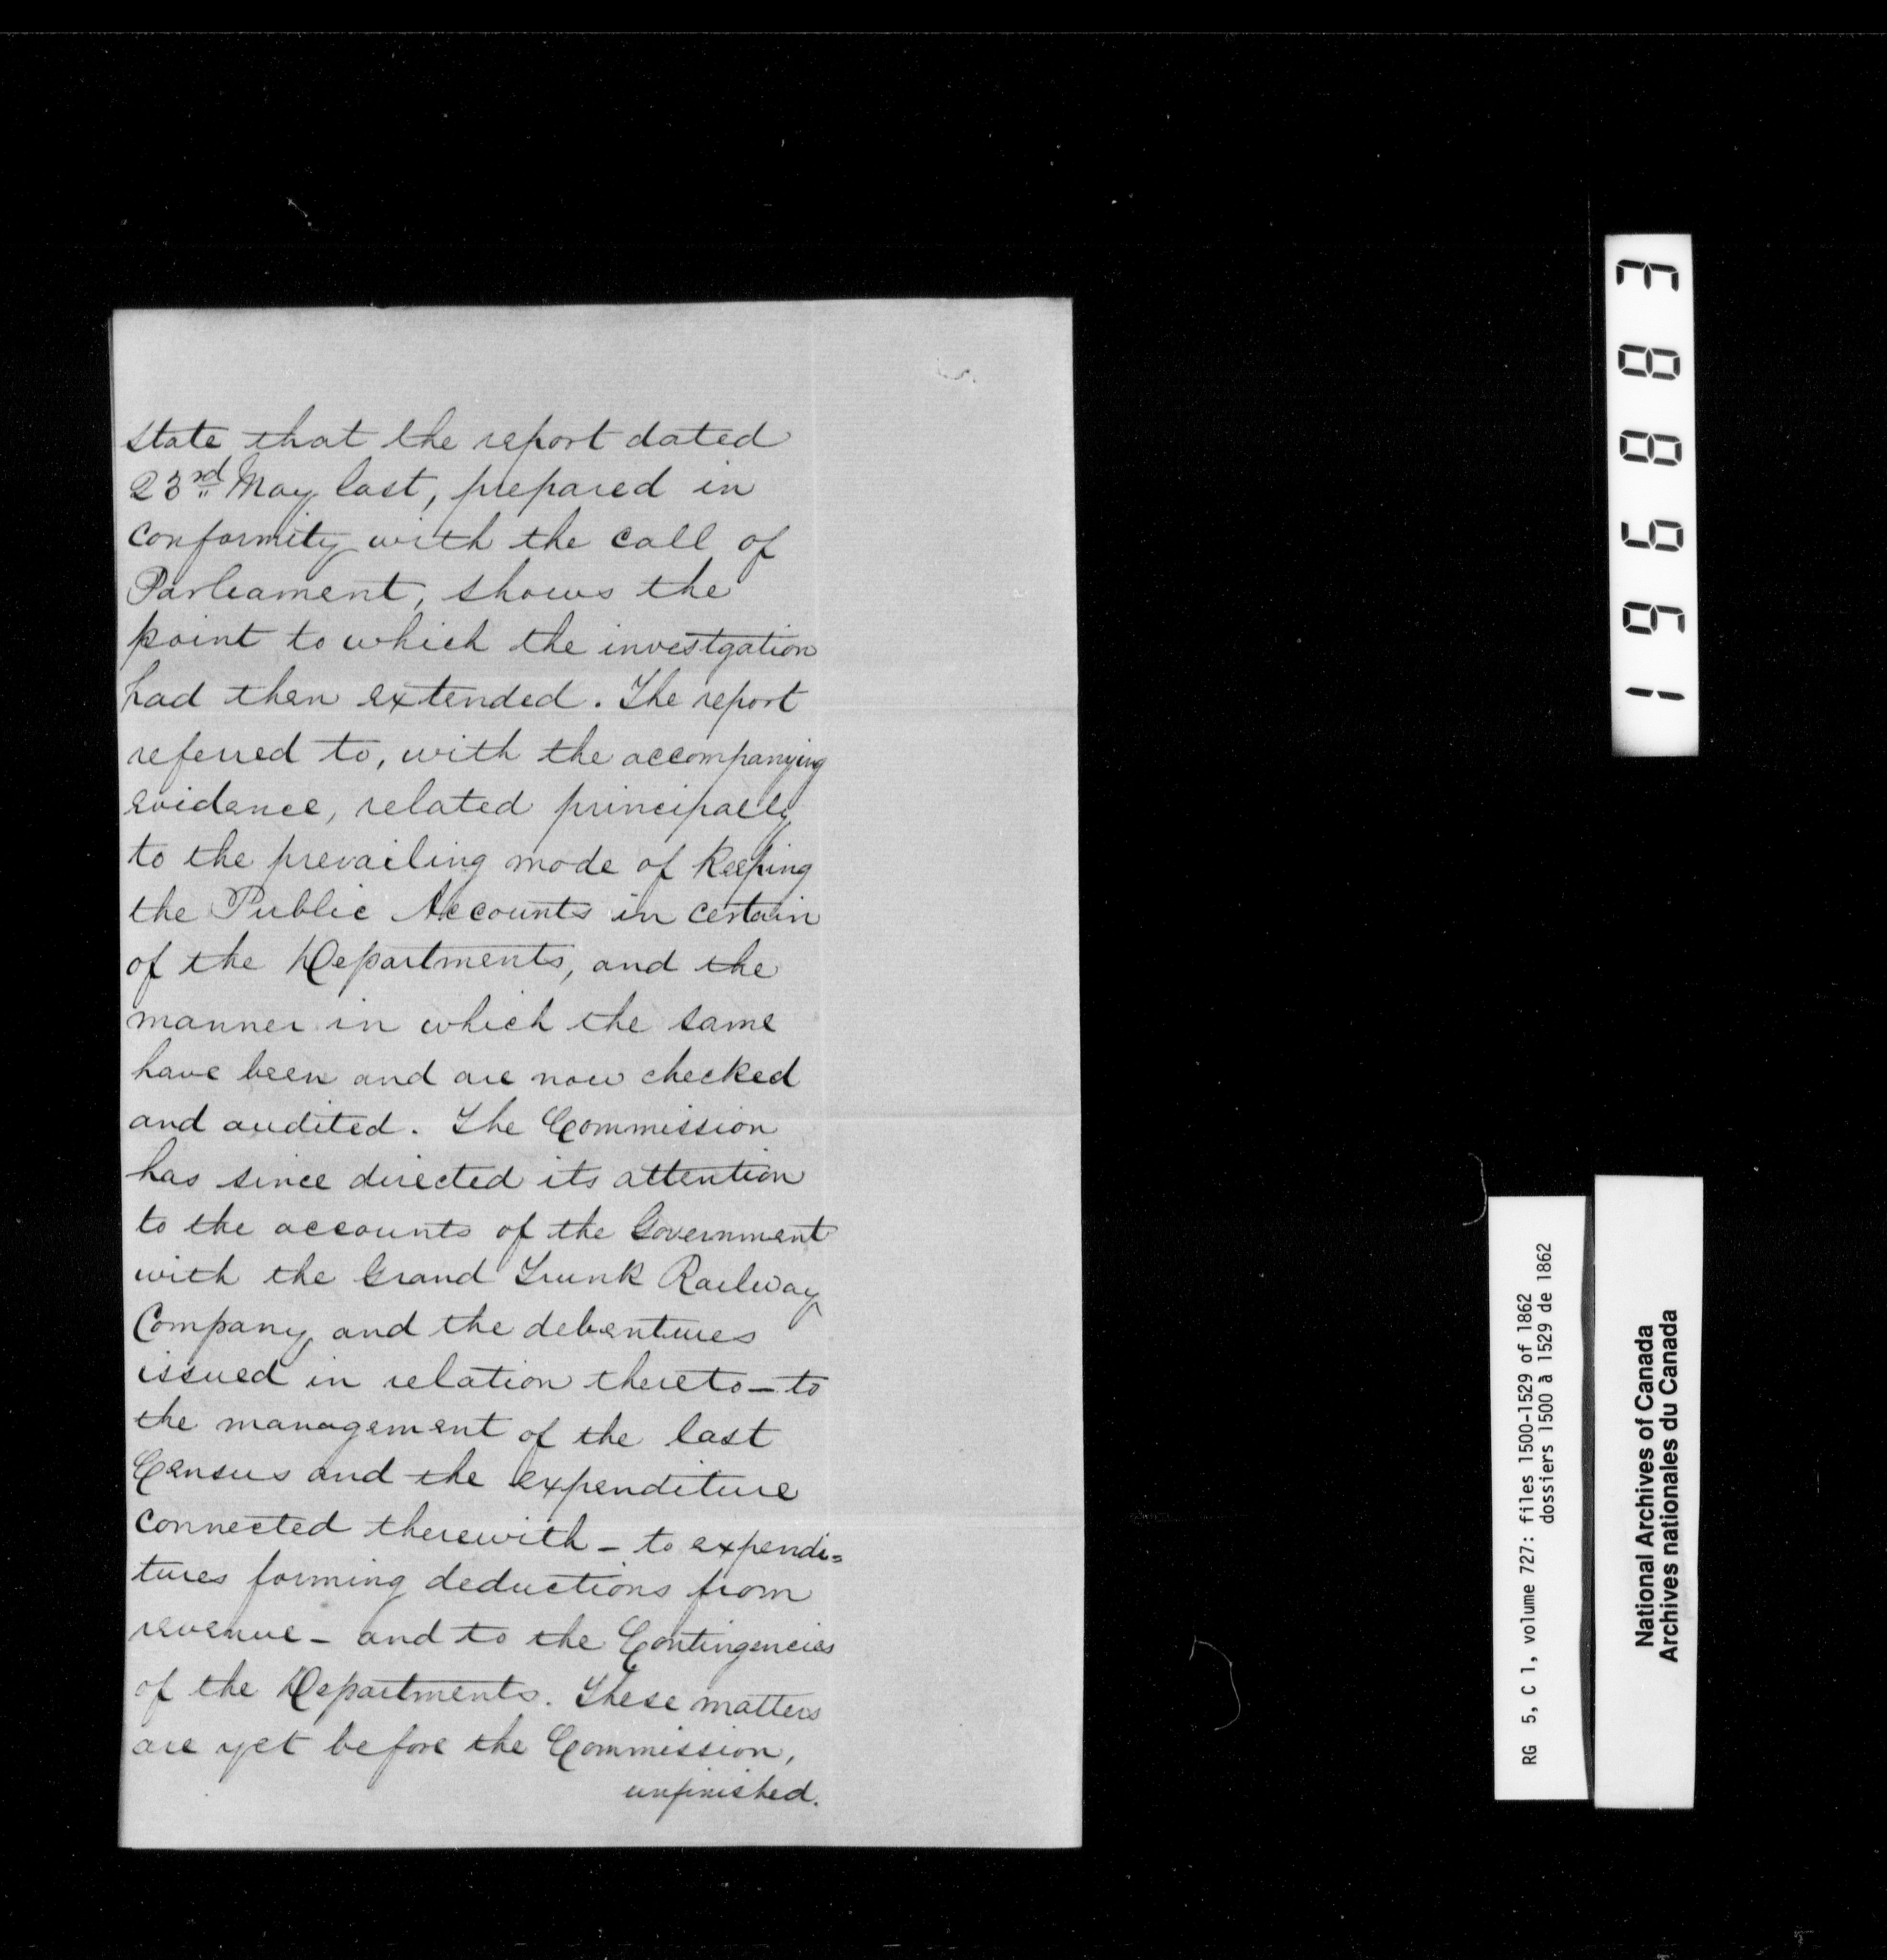 state that the report dated
23rd May last, prepared in
conformity with the call of
Parliament, shows the
point to which the investgation
had then extended. The report
referred to, with the accompanying
evidence, related principally
to the prevailing mode of keeping
the Public Accounts in certain
of the Departments, and the
manner in which the same
have been and are now checked
and audited. The Commission
has since directed its attention
to the accounts of the Government
with the Grand Trunk Railway
Company and the debentures
issued in relation thereto – to
the management of the last
Census and the expenditure
connected therewith – to expendi=
tures forming deductions from
revenue – and to the Contingencies
of the Departments. These matters
are yet before the Commission,
unfinished.
196883
RG 5, C 1, volume 727: files 1500-1529 of 1862
dossiers 1500 à 1529 de 1862
National Archives of Canada
Archives nationales du Canada